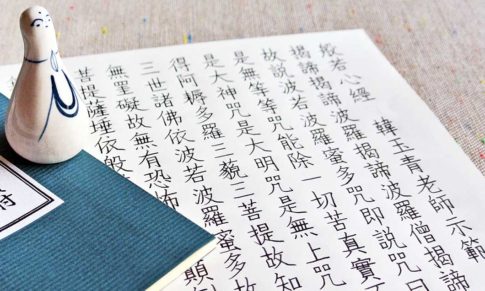 般若心經 韓玉青老師示範
揭諦揭諦波羅揭諦波羅僧揭諦
故說般若波羅蜜多咒即說咒曰
是無等等咒能除一切苦真實
是大神咒是大明咒是無上咒
得阿耨多羅三藐三菩提故知
三世諸佛依般若波羅蜜多故
無罣礙故無有恐怖 顛
菩提薩埵依般